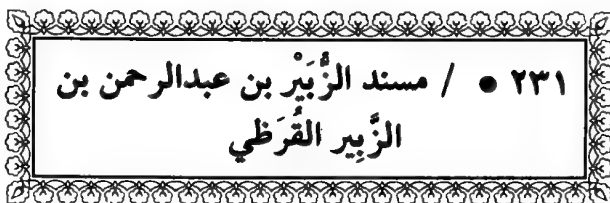 ٢٣١ • / مسند الزُّبَيْر بن عبدالرحمن بن
الزَّبِير القُرَظي